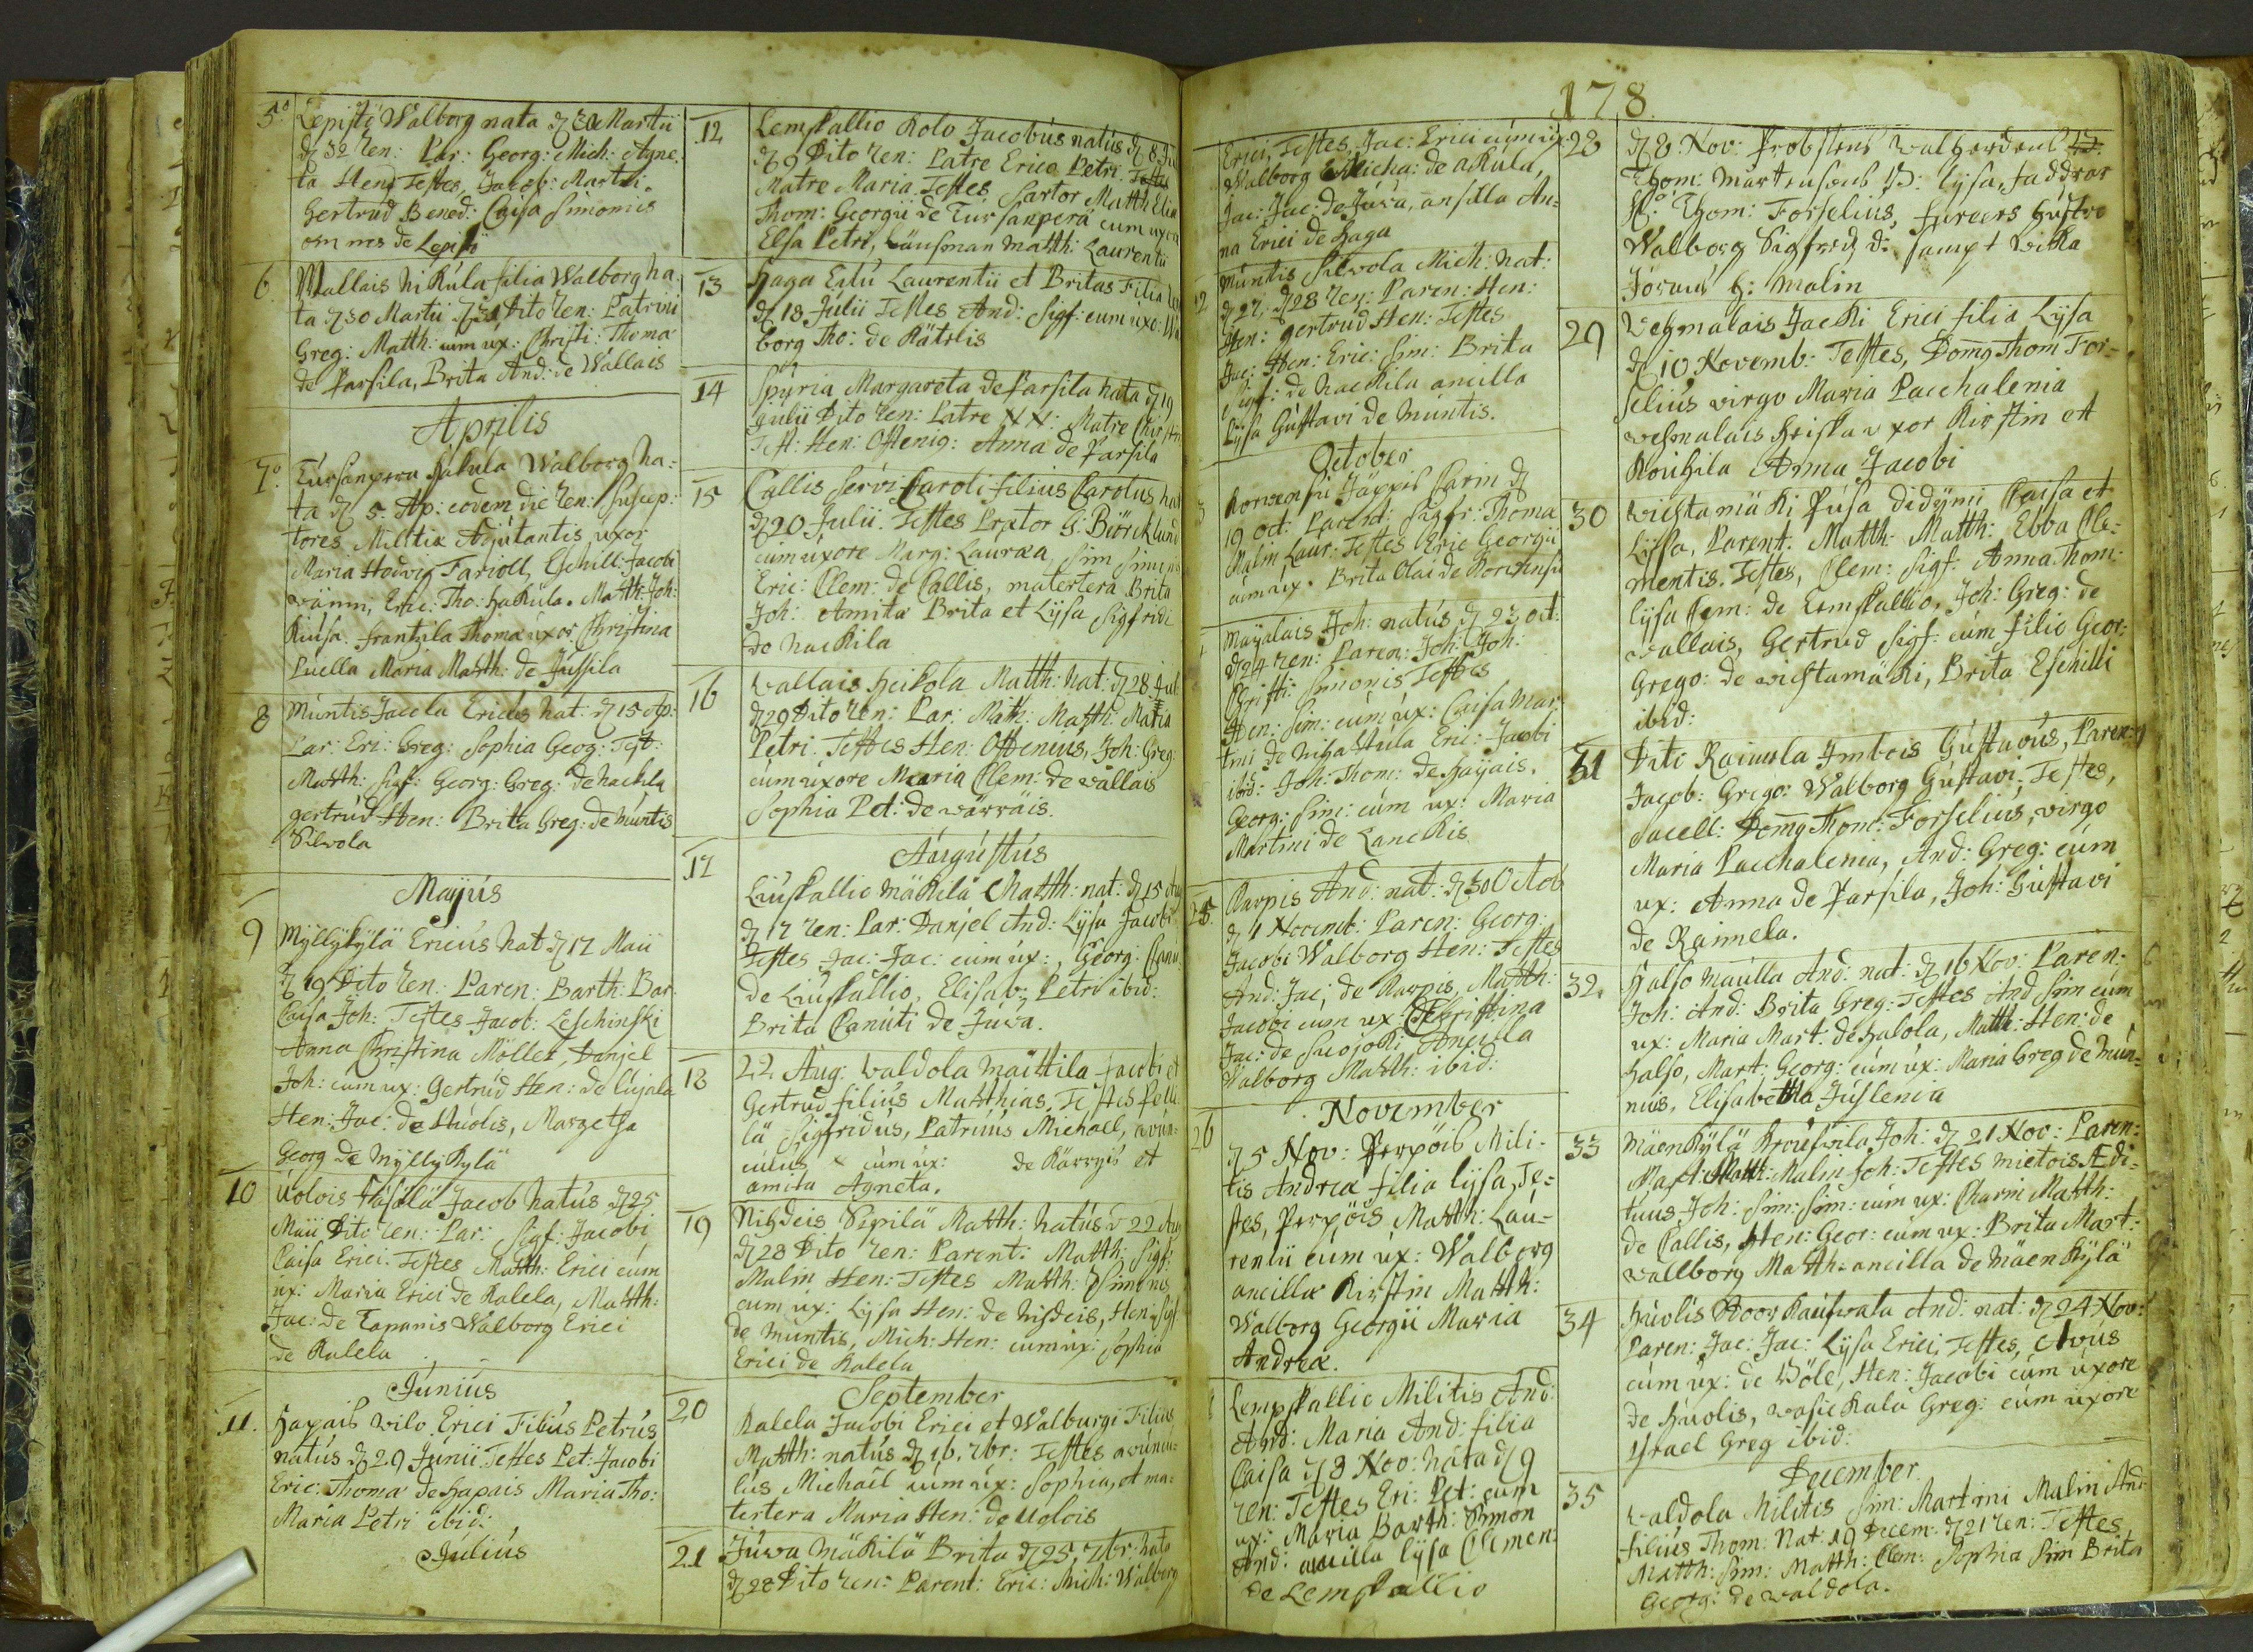 178
5.
Lepistö Walborg nata d 30 Martii
d 32 ren: Par: Georg: Mich: Agne.
ta Hen: Testes, Jacob: Martini.
Gertrud Bened: Caisa Simonis
omnes de Lepistö
6.
Wallais Nikula filia Walborg na
ta d 30 Martii d 31 Dito ren: Patrini
Greg: Matth: cum ux: Christi: Thomæ
de Parsila, Brita And: de Wallais
Aprilis
7.
Tursanpera Hakula Walborg na:
ta d 5. Ap: eodem die ren: Suscep:
tores Militiæ Adjutantis uxor
Maria Hedvig Farioll, Eschill: Jacobi
Eric: Tho: Hakula. Matth: Joh:
Kiusa. Frantzila Thomæ uxor Christina
Puella Maria Matth: de Jussila
8
Muntis Jacola Ericus nat: d 15 Ap:
Par: Eri: Greg: Sophia Geog: Test:
Matth: Sigf: Georg: Greg: de Nackila
gertrud Hen: Brita Greg: de Muntis
Silvola
Majus
9
Myllykylä Ericus nat d 17 Maii
d 19 Dito ren: Paren: Barth: Bar
Caisa Joh: Testes Jacob: Leschinski
Anna Christina Möller, Danjel
Joh: cum ux: Gertrud Hen: de Cujala
Hen: Jac: de Huolis, Margetha
Georg de Myllykylä
10
Uolois Pasala Jacob natus d 25
Maii Dito ren: Par: Sigf: Jacobi
Caisa Erici. Testes Matth: Erici cum
ux: Maria Erici de Kalela, Matth:
Jac: de Tapanis Walborg Erici
de Kalela
Junius
11.
Hapais Wilo Erici Filius Petrus
natus d 29 Junii. Testes Pet: Jacobi
Eric: Thomæ de Hapais Maria Tho:
Maria Petri ibid:
Julius
12
Lemskallio Kolo Jacobus natus d 8 Ju
d 9 Dito ren: Patre Erico Petri.
Matre Maria. Testes Sartor Matth Eliæ
Thom: Georgii de Tursanperä cum uxor
Elsa Petri, Länsman Matth: Laurentii
13
Haga Eskil Laurentii et Britas Filia
d 18 Julii Testes And: Sigf: cum uxo: Wal
borg Tho: de Kätelis
14
Spuria Margareta de Parsila nata d 19
Julii Dito ren: Patre N N: Matre Christi
Test: Hen: Ottenig: Anna de Parsila
15
Callis Servi Caroli filius Carolus nat
d 20 Julii. Testes Prætor G: Biörcklund
cum uxore Marg: Lauræa, Sim Simonis
Eric: Clem: de Callis, matertera Brita
Joh: Amita Brita et Lysa Sigfridi
do Nackila
16
Wallais Heikola Matth: Nat: d 28 Jul
d 29 Dito ren: Par: Math: Matth: Maria
Petri. Testes Hen: Ottenius, Joh: Greg:
cum uxore Maria Clem: de Wallais
Sophia Pet: de Wärräis.
Augustus
17
Liuskallio Mäkilä Matth: nat: d 15 Aug
d 17 ren: Par: Danjel And: Lysa Jacobi
Testes Jac: Jac: cum ux:, Georg: Canu
de Liuskallio, Elisab: Petri ibid:
Brita Canuti de Juva.
18
22 Aug: Waldola Maittila Jacobi et
Gertrud filius Matthias. Testes
lä Sigfridus, Patruus Michael, avun:
culus cum ux: de Kärryis et
amita Agneta.
19
Nihdeis Sepilä Matth: natus d 22 Aug
d 28 Dito ren: Parent: Matth: Sigf:
Malin Hen: Testes Matth: Simonis
cum ux: Lysa Hen: de Nihdeis, Hen: Sigf
de Muntis, Mich: Hen: cum ux: Sophia
Erici de Kalela
September
20
Kalela Jacobi Erici et Walburgi Filius
Matth: natus d 16. 7br: Testes avuncu:
lus Michael cum ux: Sophia, et ma:
tertera Maria Hen: de Uolois
21
Juwa Mäkilä Brita d 25. 7br: nata
d 28 Dito ren: Parent: Eric: Mich: Walborg
Erici, Testes, Jac: Erici cum ux:
Walborg Micha: de Akula,
Jac: Jac: de Juwa, ansilla An:
na Erici de Haga
2
Muntis Silvola Mich: nat:
d 27. d 28 ren: Paren: Hen:
Hen: Gertrud Hen: Testes
Jac: Hen: Eric: Sim: Brita
Sigf: de Nackila ancilla
Lysa Gustavi de Muntis.
October
3
Korvensu Jäppis Carin d
19 oct: Parent: Sigfr: Thomæ
Malin Laur: Testes Eric Georgii
cum ux. Brita Olai de Korvensu
Mayalais Joh: natus d 23 oct:
d 24 ren: Paren: Joh: Joh:
Christi: Simonis Testes
Hen: Sim: cum ux: Caisa Mar
tini de Nihattula Eric: Jacobi
ibid: Joh: Thom: de Hayais.
Georg: Sim: cum ux: Maria
Martini de Lanckis
25.
Karpis And: nat: d 30 Octob
d 1 Novemb: Paren: Georg:
Jacobi Walborg Hen: Testes
And: Jac: de Karpis, Matth:
Jacobi cum ux: Christina
Jac: de Suojoki Ancilla
Walborg Matth: ibid:
November
26
d 5 Nov: Perpöis Mili:
tis Andreæ filia lysa, Te:
stes, Perpöis Matth: Lau=
rentii cum ux: Walborg
ancilla Kirstin Matth:
Walborg Georgii Maria
Andreæ.
Lempskallio Militis And:
And: Maria And: filia
Caisa d 8 Nov: nata d 9
ren: Testes Eri: Pet: cum
ux: Maria Barth: Simon
And: ancilla lysa Clemen:
de Lemskallio
28
d 8 Nov: Probstens
Thom: Mårtensons B: Lysa, faddrar
H: Thom: Forselius,
Walborg Sigfrids d: sampt
H: Malin
29
Wehmalais Jacki Erici filia Lysa
d 10 Novemb: Testes, Domg Thom For=
selius virgo Maria Pacchalenia
Wehmalais Heiska uxor Kirstin et
Kouhila Anna Jacobi
30
Wichtamäki Pusa didymi Caisa et
Lyssa, Parent: Matth: Matth: Ebba Cle:
mentis. Testes, Clem: Sigf: Anna Thom:
Lysa Clem: de Lemskallio, Joh: Greg: de
Wallais, Gertrud Sigf: cum filio Geor:
Grego: de Wichtamäki, Brita Eschilli
ibid:
31
Dito Raimela Imbois Gustavus, Paren:
Jacob: Grego: Walborg Gustavi; Testes,
Sacell: Domg Thom: Forselius, virgo
Maria Pacchalenia, And: Greg: cum
ux: Anna de Parsila, Joh: Gustavi
de Raimela.
32.
Halso Maulla And: nat: d 16 Nov: Paren:
Joh: And: Brita Greg: Testes And Sim cum
ux: Maria Mart: de Halola, Matth: Hen: de
Halso, Mart: Georg: cum ux: Maria Greg de Mun:
nuis, Elisabetha Juslenia
33
Mäenkylä Krouvila Joh: d 21 Nov: Paren:
Mart: Matth: Malin Joh: Testes Mietois Ædi:
tuus Joh: Sim: Sim: cum ux: Charin Matth:
de Callis, Hen: Geor: cum ux: Brita Mart:
Wallborg Matth: ancilla de Mäenkylä
34
Huolis Koor Kaukvala And: nat: d 24 Nov:
Paren: Jac: Jac: Lysa Erici, Testes, Avus
cum ux: de Wöle, Hen: Jacobi cum uxore
de Huolis, Wasickala Greg: cum uxore
Israel Greg ibid:
December
35
Waldola Militis Sim: Martini Malin And:
filius Thom: Nat: 19 Decem: d 21 ren: Testes
Matth: Sim: Matth: Clem: Sophia Sim Brita
Georg: de Waldola.